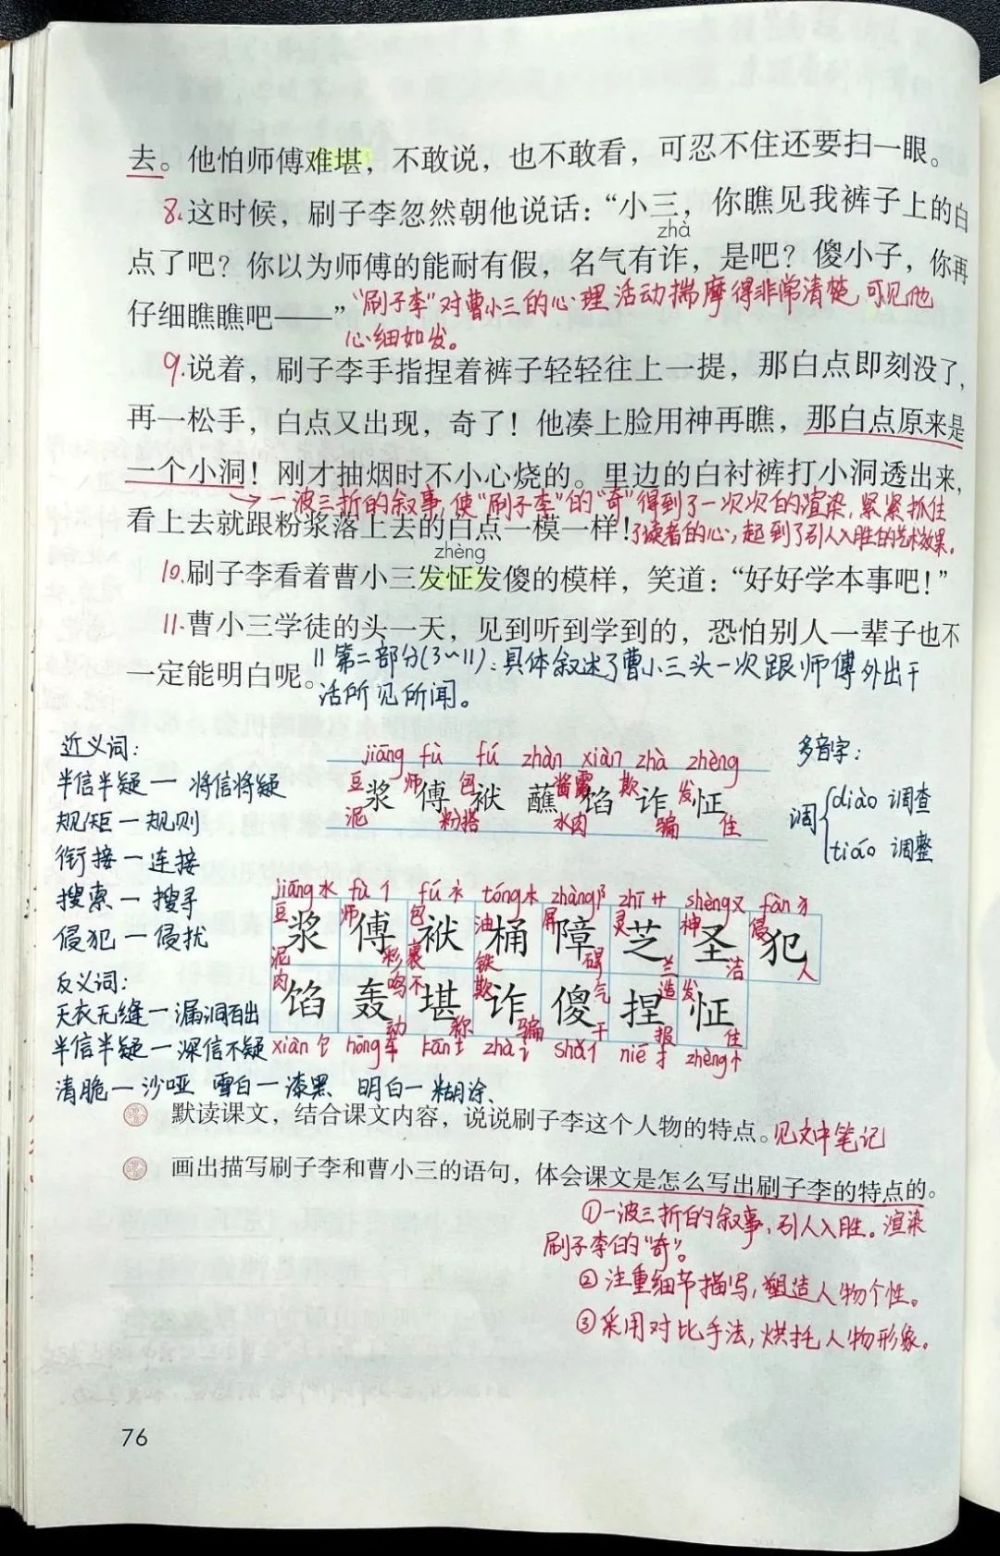 去。他怕师傅难堪，不敢说，也不敢看，可忍不住还要扫一眼。
8.这时候，刷子李忽然朝他说话：“小三，你瞧见我裤子上的白
zhà
点了吧？你以为师傅的能耐有假，名气有诈，是吧？傻小子，你再
仔细瞧瞧吧——”
“刷子李”对曹小三的心理活动揣摩得非常清楚，可见他
心细如发。
9.说着，刷子李手指捏着裤子轻轻往上一提，那白点即刻没了，
再一松手，白点又出现，奇了！他凑上脸用神再瞧，那白点原来是
一个小洞！刚才抽烟时不小心烧的。里边的白衬裤打小洞透出来，
→一波三折的叙事，使“刷子李”的“奇”得到了一次次的渲染，紧紧抓住
看上去就跟粉浆落上去的白点一模一样！
了读者的心，起到了引人入胜的艺术效果。
zhèng
10.刷子李看着曹小三发怔发傻的模样，笑道：“好好学本事吧！”
11.曹小三学徒的头一天，见到听到学到的，恐怕别人一辈子也不
一定能明白呢。
‖第二部分(3～11)：具体叙述了曹小三头一次跟师傅外出干
活所见所闻。
近义词：
半信半疑一将信将疑
规矩一规则
衔接一连接
搜索一搜寻
侵犯一侵扰
反义词：
天衣无缝一漏洞百出
半信半疑一深信不疑
清脆一沙哑 雪白一漆黑 明白一糊涂
jiāng fù fú zhàn xiàn zhà zhèng
豆 师 包 酱 露 欺 发
浆 傅 袱 蘸 馅 诈 怔
泥 粉 搭 水 肉 骗 住
多音字：
调
diào 调查
tiáo 调整
jiāng水 fù亻 fú衤 tóng木 zhàng阝 zhī艹 shèng又 fàn犭
豆 师 包 油 屏 灵 神 侵
浆 傅 袱 桶 障 芝 圣 犯
泥 裹 铁 碍 兰 洁 人
肉 彩 鸣 不 欺 气 造 发
馅 轰 堪 诈 傻 捏 怔
动 称 骗 干 报 住
xiàn饣 hōng车 kān土 zhà讠 shǎ亻 niē扌 zhèng忄
默读课文，结合课文内容，说说刷子李这个人物的特点。见文中笔记
画出描写刷子李和曹小三的语句，体会课文是怎么写出刷子李的特点的。
①一波三折的叙事，引人入胜。渲染
刷子李的“奇”。
②注重细节描写，塑造人物个性。
③采用对比手法，烘托人物形象。
76